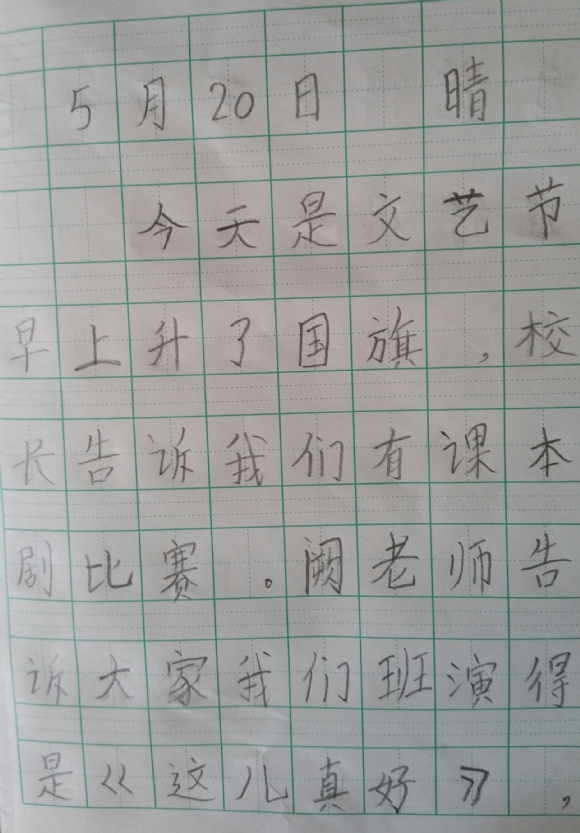 5月20日 晴
今天是文艺节
早上升了国旗，校
长告诉我们有课本
剧比赛。阙老师告
诉大家我们班演得
是《这儿真好》，